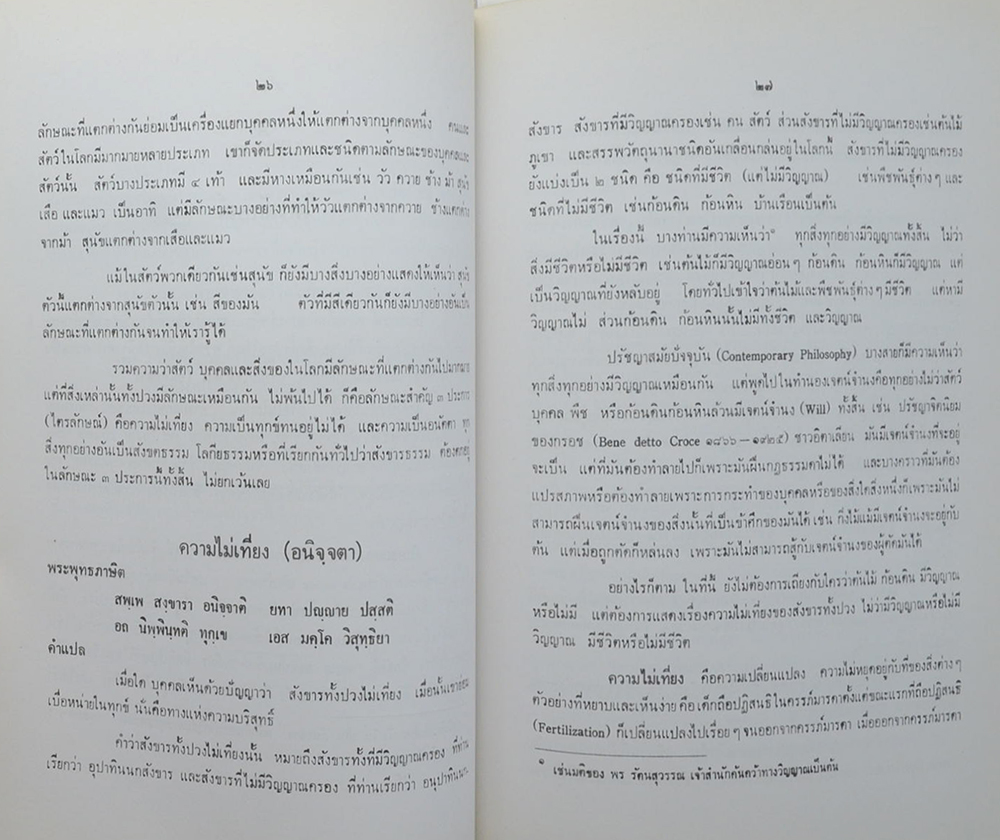 ๒๖
ลักษณะที่แตกต่างกันย่อมเป็นเครื่องแยกบุคคลหนึ่งให้แตกต่างจากบุคคลหนึ่ง คนและ
สัตว์ในโลกมีมากมายหลายประเภท เขาก็จัดประเภทและชนิดตามลักษณะของบุคคลและ
สัตว์นั้น สัตว์บางประเภทมี ๔ เท้า และมีหางเหมือนกันเช่น วัว ควาย ช้าง ม้า สุนัข
เสือ และแมว เป็นอาทิ แต่มีลักษณะบางอย่างที่ทำให้วัวแตกต่างจากควาย ช้างแตกต่าง
จากม้า สุนัขแตกต่างจากเสือและแมว
แม้ในสัตว์พวกเดียวกันเช่นสุนัข ก็ยังมีบางสิ่งบางอย่างแสดงให้เห็นว่า สุนัข
ตัวนี้แตกต่างจากสุนัขตัวนั้น เช่น สีของมัน ตัวที่มีสีเดียวกันก็ยังมีบางอย่างอันเป็น
ลักษณะที่แตกต่างกันจนทำให้เรารู้ได้
รวมความว่าสัตว์ บุคคลและสิ่งของในโลกมีลักษณะที่แตกต่างกันไปมากมาย
แต่ที่สิ่งเหล่านั้นทั้งปวงมีลักษณะเหมือนกัน ไม่พ้นไปได้ ก็คือลักษณะสำคัญ ๓ ประการ
(ไตรลักษณ์) คือความไม่เที่ยง ความเป็นทุกข์ทนอยู่ไม่ได้ และความเป็นอนัตตา ทุก
สิ่งทุกอย่างอันเป็นสังขตธรรม โลกียธรรมหรือที่เรียกกันทั่วไปว่าสังขารธรรม ต้องตกอยู่
ในลักษณะ ๓ ประการนี้ทั้งสิ้น ไม่ยกเว้นเลย
ความไม่เที่ยง (อนิจฺจตา)
พระพุทธภาษิต
สพฺเพ สงฺขารา อนิจฺจาติ ยทา ปญฺญาย ปสฺสติ
อถ นิพฺพินฺทติ ทุกฺเข เอส มคฺโค วิสุทฺธิยา
คำแปล
เมื่อใด บุคคลเห็นด้วยปัญญาว่า สังขารทั้งปวงไม่เที่ยง เมื่อนั้นเขาย่อม
เบื่อหน่ายในทุกข์ นั่นคือทางแห่งความบริสุทธิ์
คำว่าสังขารทั้งปวงไม่เที่ยงนั้น หมายถึงสังขารทั้งที่มีวิญญาณครอง ที่ท่าน
เรียกว่า อุปาทินนกสังขาร และสังขารที่ไม่มีวิญญาณครอง ที่ท่านเรียกว่า อนุปาทินนก
๒๗
สังขาร สังขารที่มีวิญญาณครองเช่น คน สัตว์ ส่วนสังขารที่ไม่มีวิญญาณครองเช่นต้นไม้
ภูเขา และสรรพวัตถุนานาชนิดอันเกลื่อนกล่นอยู่ในโลกนี้ สังขารที่ไม่มีวิญญาณครอง
ยังแบ่งเป็น ๒ ชนิด คือ ชนิดที่มีชีวิต (แต่ไม่มีวิญญาณ) เช่นพืชพันธุ์ต่างๆ และ
ชนิดที่ไม่มีชีวิต เช่นก้อนดิน ก้อนหิน บ้านเรือนเป็นต้น
ในเรื่องนี้ บางท่านมีความเห็นว่า๑ ทุกสิ่งทุกอย่างมีวิญญาณทั้งสิ้น ไม่ว่า
สิ่งมีชีวิตหรือไม่มีชีวิต เช่นต้นไม้ก็มีวิญญาณอ่อนๆ ก้อนดิน ก้อนหินก็มีวิญญาณ แต่
เป็นวิญญาณที่ยังหลับอยู่ โดยทั่วไปเข้าใจว่าต้นไม้และพืชพันธุ์ต่างๆ มีชีวิต แต่หามี
วิญญาณไม่ ส่วนก้อนดิน ก้อนหินนั้นไม่มีทั้งชีวิต และวิญญาณ
ปรัชญาสมัยปัจจุบัน (Contemporary Philosophy) บางสายก็มีความเห็นว่า
ทุกสิ่งทุกอย่างมีวิญญาณเหมือนกัน แต่พูดไปในทำนองเจตน์จำนงคือทุกอย่างไม่ว่าสัตว์
บุคคล พืช หรือก้อนดินก้อนหินล้วนมีเจตน์จำนง (Will) ทั้งสิ้น เช่น ปรัชญาจิตนิยม
ของกรอช (Bene detto Croce ๑๘๖๖—๑๙๒๕) ชาวอิตาเลียน มันมีเจตน์จำนงที่จะอยู่
จะเป็น แต่ที่มันต้องทำลายไปก็เพราะมันฝืนกฎธรรมดาไม่ได้ และบางคราวที่มันต้อง
แปรสภาพหรือต้องทำลายเพราะการกระทำของบุคคลหรือของสิ่งใดสิ่งหนึ่งก็เพราะมันไม่
สามารถฝืนเจตน์จำนงของสิ่งนั้นที่เป็นข้าศึกของมันได้ เช่น กิ่งไม้แม้มีเจตน์จำนงจะอยู่กับ
ต้น แต่เมื่อถูกตัดก็หล่นลง เพราะมันไม่สามารถสู้กับเจตน์จำนงของผู้ตัดมันได้
อย่างไรก็ตาม ในที่นี้ ยังไม่ต้องการเถียงกับใครว่าต้นไม้ ก้อนดิน มีวิญญาณ
หรือไม่มี แต่ต้องการแสดงเรื่องความไม่เที่ยงของสังขารทั้งปวง ไม่ว่ามีวิญญาณหรือไม่มี
วิญญาณ มีชีวิตหรือไม่มีชีวิต
ความไม่เที่ยง คือความเปลี่ยนแปลง ความไม่หยุดอยู่กับที่ของสิ่งต่างๆ
ตัวอย่างที่หยาบและเห็นง่าย คือ เด็กถือปฏิสนธิในครรภ์มารดาตั้งแต่ขณะแรกที่ถือปฏิสนธิ
(Fertilization) ก็เปลี่ยนแปลงไปเรื่อยๆ จนออกจากครรภ์มารดา เมื่อออกจากครรภ์มารดา
๑ เช่นมติของ พร รัตนสุวรรณ เจ้าสำนักค้นคว้าทางวิญญาณเป็นต้น